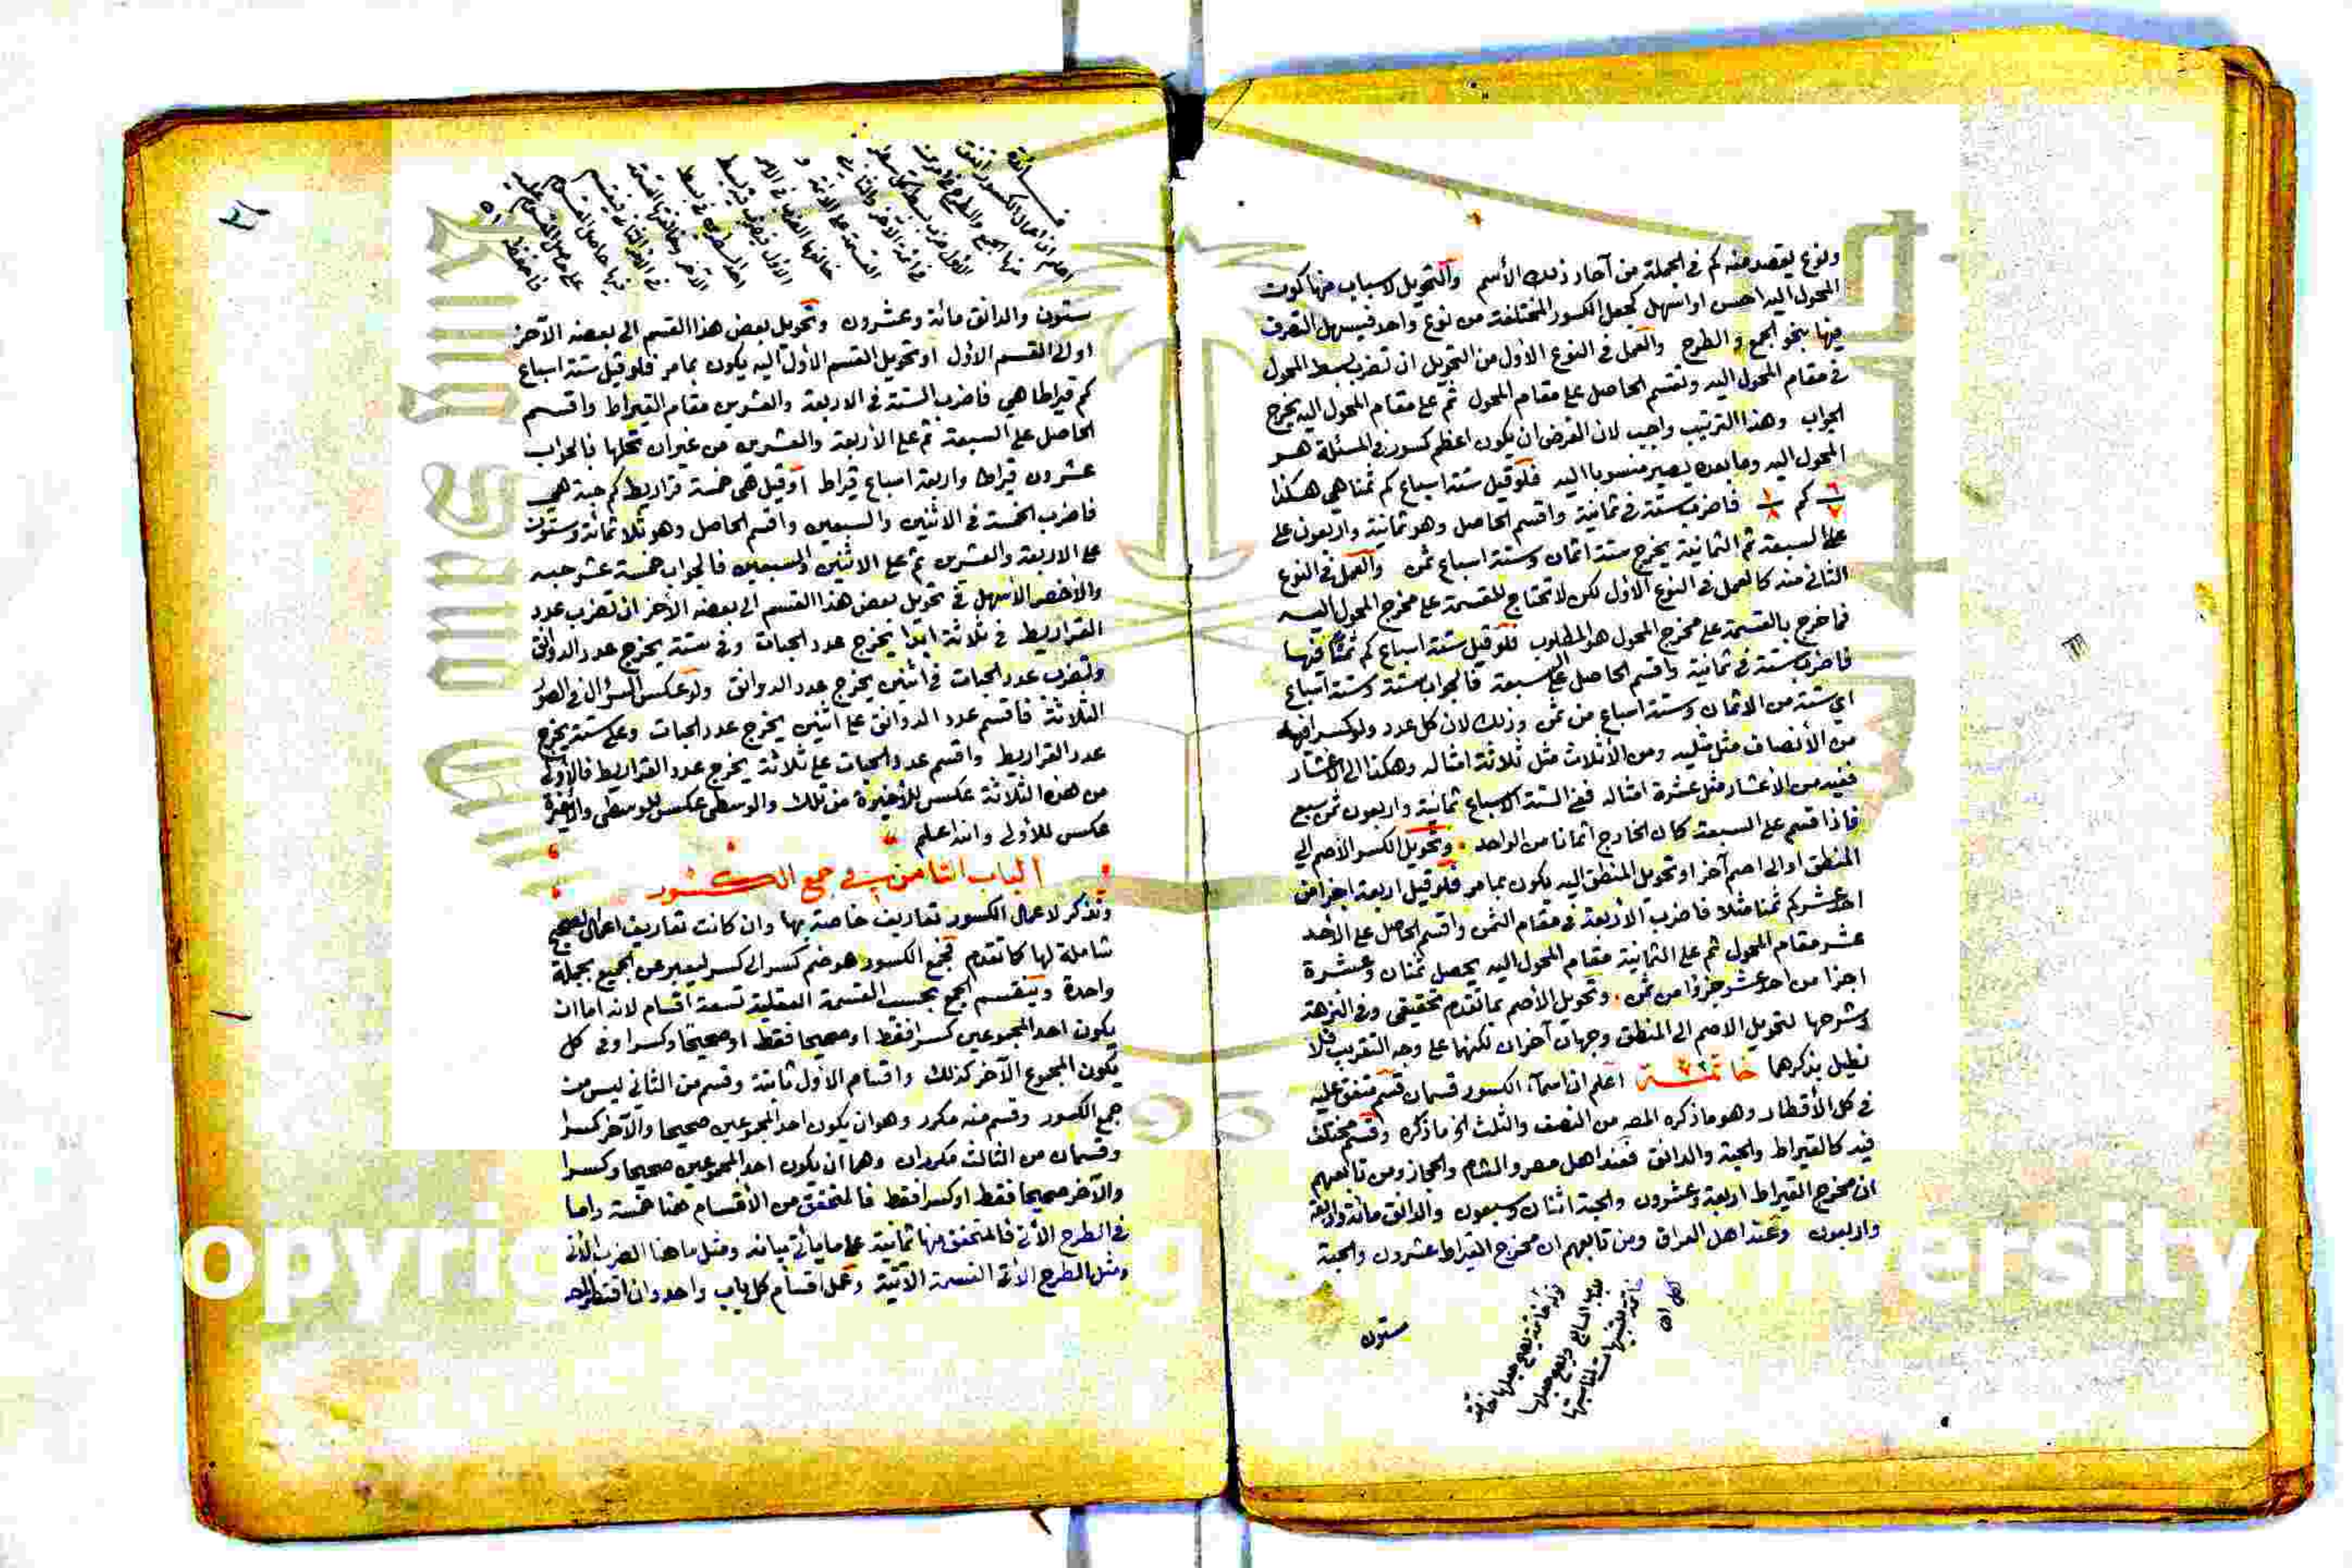 ونوع يقصد منه كم في الجملة من آحاد ذلك الأسم والتحويل لاسباب منها كون
المحول اليه احسن او اسهل كجعل الكسور المختلفة من نوع واحد فيسهل التصرف
فيها بنحو الجمع والطرح والعمل في النوع الأول من التحويل ان تضرب بسط المحول
في مقام المحول اليه وتقسم الحاصل على مقام المحول ثم على مقام المحول اليه يخرج
الجواب وهذا الترتيب واجب لان الغرض ان يكون اعظم كسور في المسئلة هو
المحول اليه وما بعده يصير منسوبا اليه فلو قيل ستة اسباع كم ثمنا هي هكذا
٦/٧ كم ١/٨ فاضرب ستة في ثمانية واقسم الحاصل وهو ثمانية واربعون على
على السبعة ثم الثمانية يخرج ستة اثمان وستة اسباع ثمن والعمل في النوع
الثاني منه كالعمل في النوع الأول لكن لا تحتاج للقسمة على مخرج المحول اليه
فما خرج بالقسمة على مخرج المحول هو المطلوب فلو قيل ستة اسباع كم ثمنا فيها
فاضرب ستة في ثمانية واقسم الحاصل على سبعة فالجواب ستة وستة اسباع
اي ستة من الاثمان وستة اسباع من ثمن وذلك لان كل عدد ولو كسرا فيه
من الأنصاف مثل مثليه ومن الأثلاث مثل ثلاثة امثاله وهكذا الى الاعشار
ففيه من الأعشار مثل عشرة امثاله ففي الستة الاسباع ثمانية واربعون ثمن سبع
فاذا قسم على السبعة كان الخارج اثمانا من الواحد وتحويل الكسر الأصم الى
المنطق او الى اصم آخر او تحويل المنطق اليه يكون بما مر فلو قيل اربعة اجزا من
احد عشر كم ثمنا مثلا فاضرب الأربعة في مقام الثمن واقسم الحاصل على الأحد
عشر مقام المحول ثم على الثمانية مقام المحول اليه يحصل ثمنان وعشرة
اجزا من احد عشر جزؤا من ثمن وتحويل الأصم بما تقدم تحقيقي وفي النزهة
وشرحها لتحويل الاصم الى المنطق وجهان آخران لكنها على وجه التقريب فلا
نطيل بذكرهما خاتمة اعلم ان اسماء الكسور قسمان قسم متفق عليه
في كل الأقطار وهو ما ذكره المص من النصف والثلث الخ ما ذكره وقسم مختلف
فيه كالقيراط والحبة والدانق فعند اهل مصر والشام والحجاز ومن تابعهم
ان مخرج القيراط اربعة وعشرون والحبة اثنان وسبعون والدانق مائة واربعة
واربعون وعند اهل العراق ومن تابعهم ان مخرج القيراط عشرون والحبة
ستون
ستون والدانق مائة وعشرون وتحويل بعض هذا القسم الى بعضه الآخر
او الى القسم الأول او تحويل القسم الأول اليه يكون بما مر فلو قيل ستة اسباع
كم قيراطا هي فاضرب الستة في الاربعة والعشرين مقام القيراط واقسم
الحاصل على السبعة ثم على الأربعة والعشرين من غير ان تحلها فالجواب
عشرون قيراطا واربعة اسباع قيراط او قيل هي خمسة قراريط كم حبة هي
فاضرب الخمسة في الاثنين والسبعين واقسم الحاصل وهو ثلاثمائة وستون
على الاربعة والعشرين ثم على الاثنين والسبعين فالجواب خمسة عشر حبة
والأخصر الأسهل في تحويل بعض هذا القسم الى بعضه الآخر ان تضرب عدد
القراريط في ثلاثة ابدا يخرج عدد الحبات وفي ستة يخرج عدد الدوانق
وتضرب عدد الحبات في اثنين يخرج عدد الدوانق ولو عكس السؤال في الصور
الثلاثة فاقسم عدد الدوانق على اثنين يخرج عدد الحبات وعلى ستة يخرج
عدد القراريط واقسم عدد الحبات على ثلاثة يخرج عدد القراريط فالأولى
من هذه الثلاثة عكس للأخيرة من تلك والوسطى عكس للوسطى والأخيرة
عكس للأولى والله اعلم
الباب الثامن في جمع الكسور
ونذكر لاعمال الكسور تعاريف خاصة بها وان كانت تعاريف اعمال الصحيح
شاملة لها كما تقدم فجمع الكسور هو ضم كسر الى كسر ليعبر عن الجميع بجملة
واحدة وينقسم الجمع بحسب القسمة العقلية تسعة اقسام لانه اما ان
يكون احد المجموعين كسرا فقط او صحيحا فقط او صحيحا وكسرا وفي كل
يكون المجموع الآخر كذلك واقسام الأول ثابتة وقسم من الثاني ليس من
جمع الكسور وقسم منه مكرر وهو ان يكون احد المجموعين صحيحا والآخر كسرا
وقسمان من الثالث مكرران وهما ان يكون احد المجموعين صحيحا وكسرا
والآخر صحيحا فقط او كسرا فقط فالمتحقق من الأقسام هنا خمسة واما
في الطرح الأتي فالمتحقق منها ثمانية على ما يأتي بيانه ومثل ما هنا الضرب الأتي
ومثل الطرح الأتي القسمة الآتية وعمل اقسام كل باب واحد وان اقتصر المص